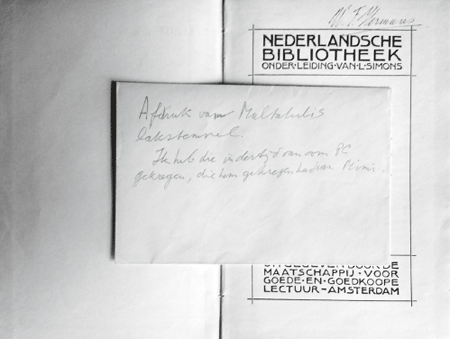 W. F. Hermans
NEDERLANDSCHE
BIBLIOTHEEK
ONDER·LEIDING·VAN·L·SIMONS
Afdruk van Multatulis
lakstempel.
Ik heb die indertijd van oom
gekregen, die hem gekregen had van
UITGEGEVEN DOOR DE
MAATSCHAPPIJ·VOOR
GOEDE·EN·GOEDKOOPE
LECTUUR–AMSTERDAM